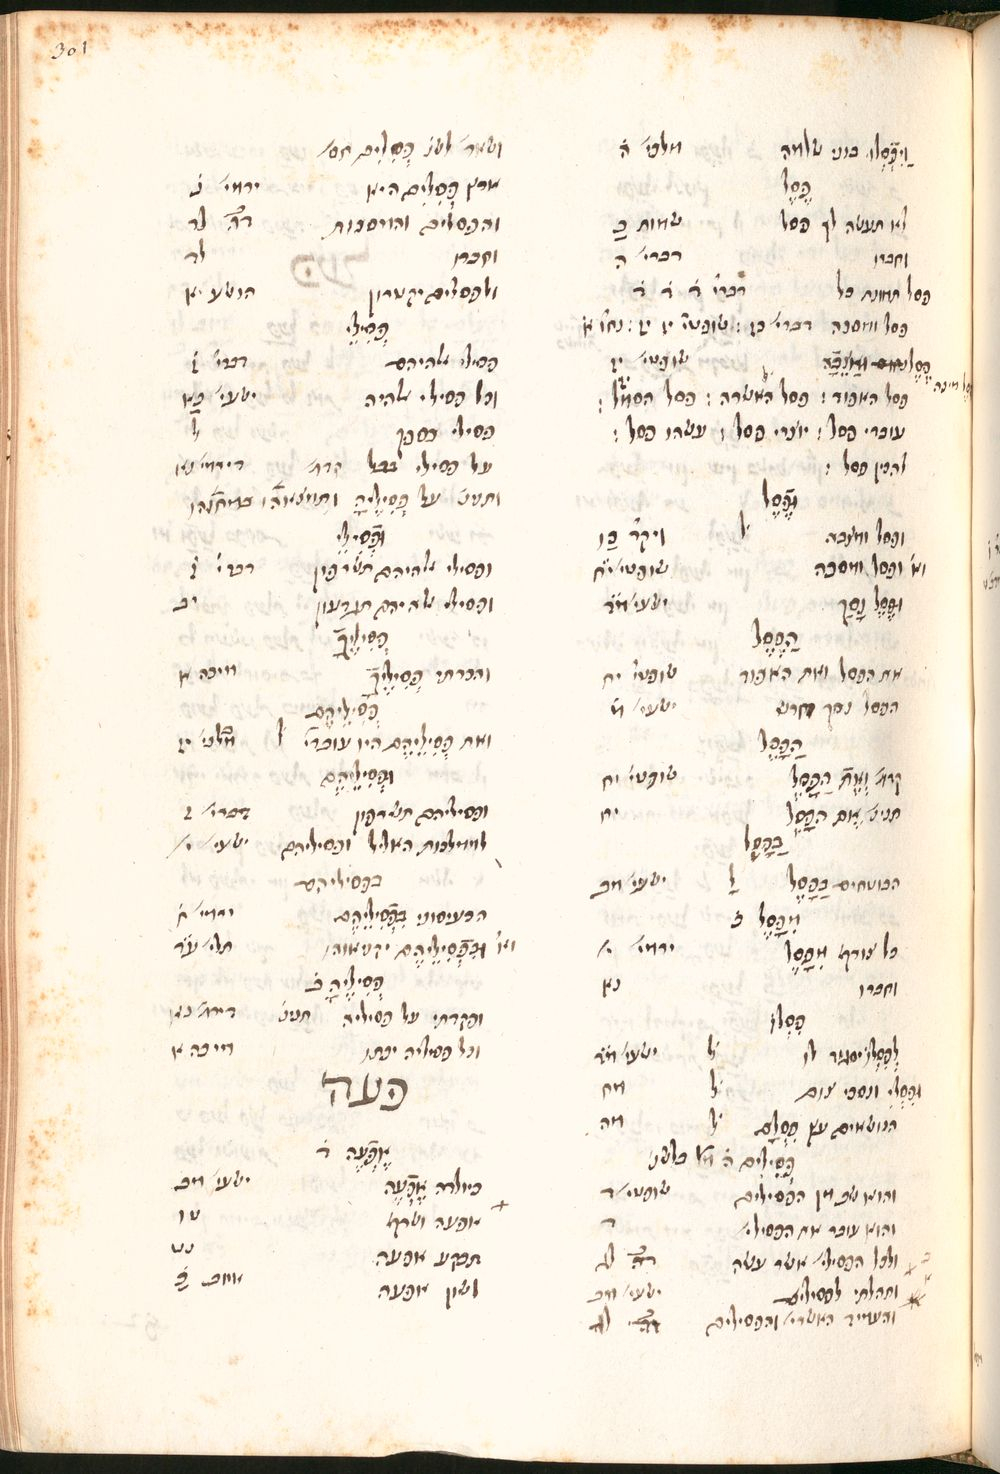 301
וַיִּפְסְלוּ בוני שלמה מלכי׳ ה
פֶּסֶל
לא תעשה לך פסל שמות כ
וחברו דברי׳ ה
פסל תמונת כל דברי׳ ד ד ד
פסל ומסכה דברי׳ כז : שופטי׳ יז יז : נחו׳ א
שופטי׳ יז
פסל האפוד : פסל האשרה : פסל הסמל :
עובדי פסל : יוצרי פסל : עשהו פסל :
להכין פסל :
וּפֶסֶל
ופסל ומצבה ל׳ ויקר׳ כו
וא׳ ופסל ומסכה שופטי׳ יח
וּפֶסֶל נָסַךְ ישעי׳ מד
הַפֶּסֶל
את הפסל ואת האפוד שופטי׳ יח
הפסל נסך חרש ישעי׳ מ
הַפָּסֶל
קדמ׳ וְאֶת הַפָּסֶל שופטי׳ יח
תניינ׳ אֶת הַפָּסֶל יח
בַּפָּסֶל
הבוטחים בַּפָּסֶל ל׳ ישעי׳ מב
מִפָּסֶל ב
כל צורף מִפָּסֶל ירמי׳ י
וחברו נא
פסלו
לְפִסְלוֹ יסגיד לו ל׳ ישעי׳ מד
וּפִסְלִי ונסכי צום ל׳ מח
הנושאים עץ פִּסְלָם ל׳ מה
פְּסִילִים
והוא שב מן הפסילים שופטי׳ ג
והוא עבר את הפסילי׳
ולכל הפסילי׳ אשר עשה דה׳ לג
ותהלתי לפסילים ישעי׳ מב
והעמיד האשרי׳ והפסילים דה׳ לג
ושאר׳ לשנ׳ פְּסִלִים חס׳
ארץ פְּסִלִים היא ירמי׳ נ
והפסלים והמסכות דה׳ לד
וחברו לד
ולפסלים יקטרון הושע יא
פְּסִילֵי
פסילי אלהיהם דברי׳ ז
וכל פסילי אלהיה ישעי׳ כא
פסילי כספך ל
על פסילי בבל קדמ׳ דירמי׳ נא
ותנינ׳ על פְּסִילֶיהָ
וּפְסִילֵי
ופסילי אלהיהם תשרפון דברי׳ ז
ופסילי אלהיהם תגדעון יב
פְּסִילֶיךָ
והכרתי פְּסִילֶיךָ מיכה א
פְּסִילֵיהֶם
ואת פְּסִילֵיהֶם היו עובדי׳ ל׳ מלכי׳ יז
וּפְסִילֵיהֶם
ופסיליהם תשרפון דברי׳ ז
לממלכות האליל ופסיליהם ישעי׳ י
בפסיליהם
הכעיסוני בִּפְסִילֵיהֶם ירמי׳ ח
וא׳ וּבִפְסִילֵיהֶם יקניאוהו תלי׳ עח
פְּסִילֶיהָ ב
ופקדתי על פסיליה תנינ׳ דירמ׳ נא
וכל פסיליה יכתו מיכה א
פעה
אֶפְעֶה ד
כיולדה אֶפְעֶה ישעי׳ מב
אפעה ושרף
תבקע אפעה נט
לשון אפעה איוב כ